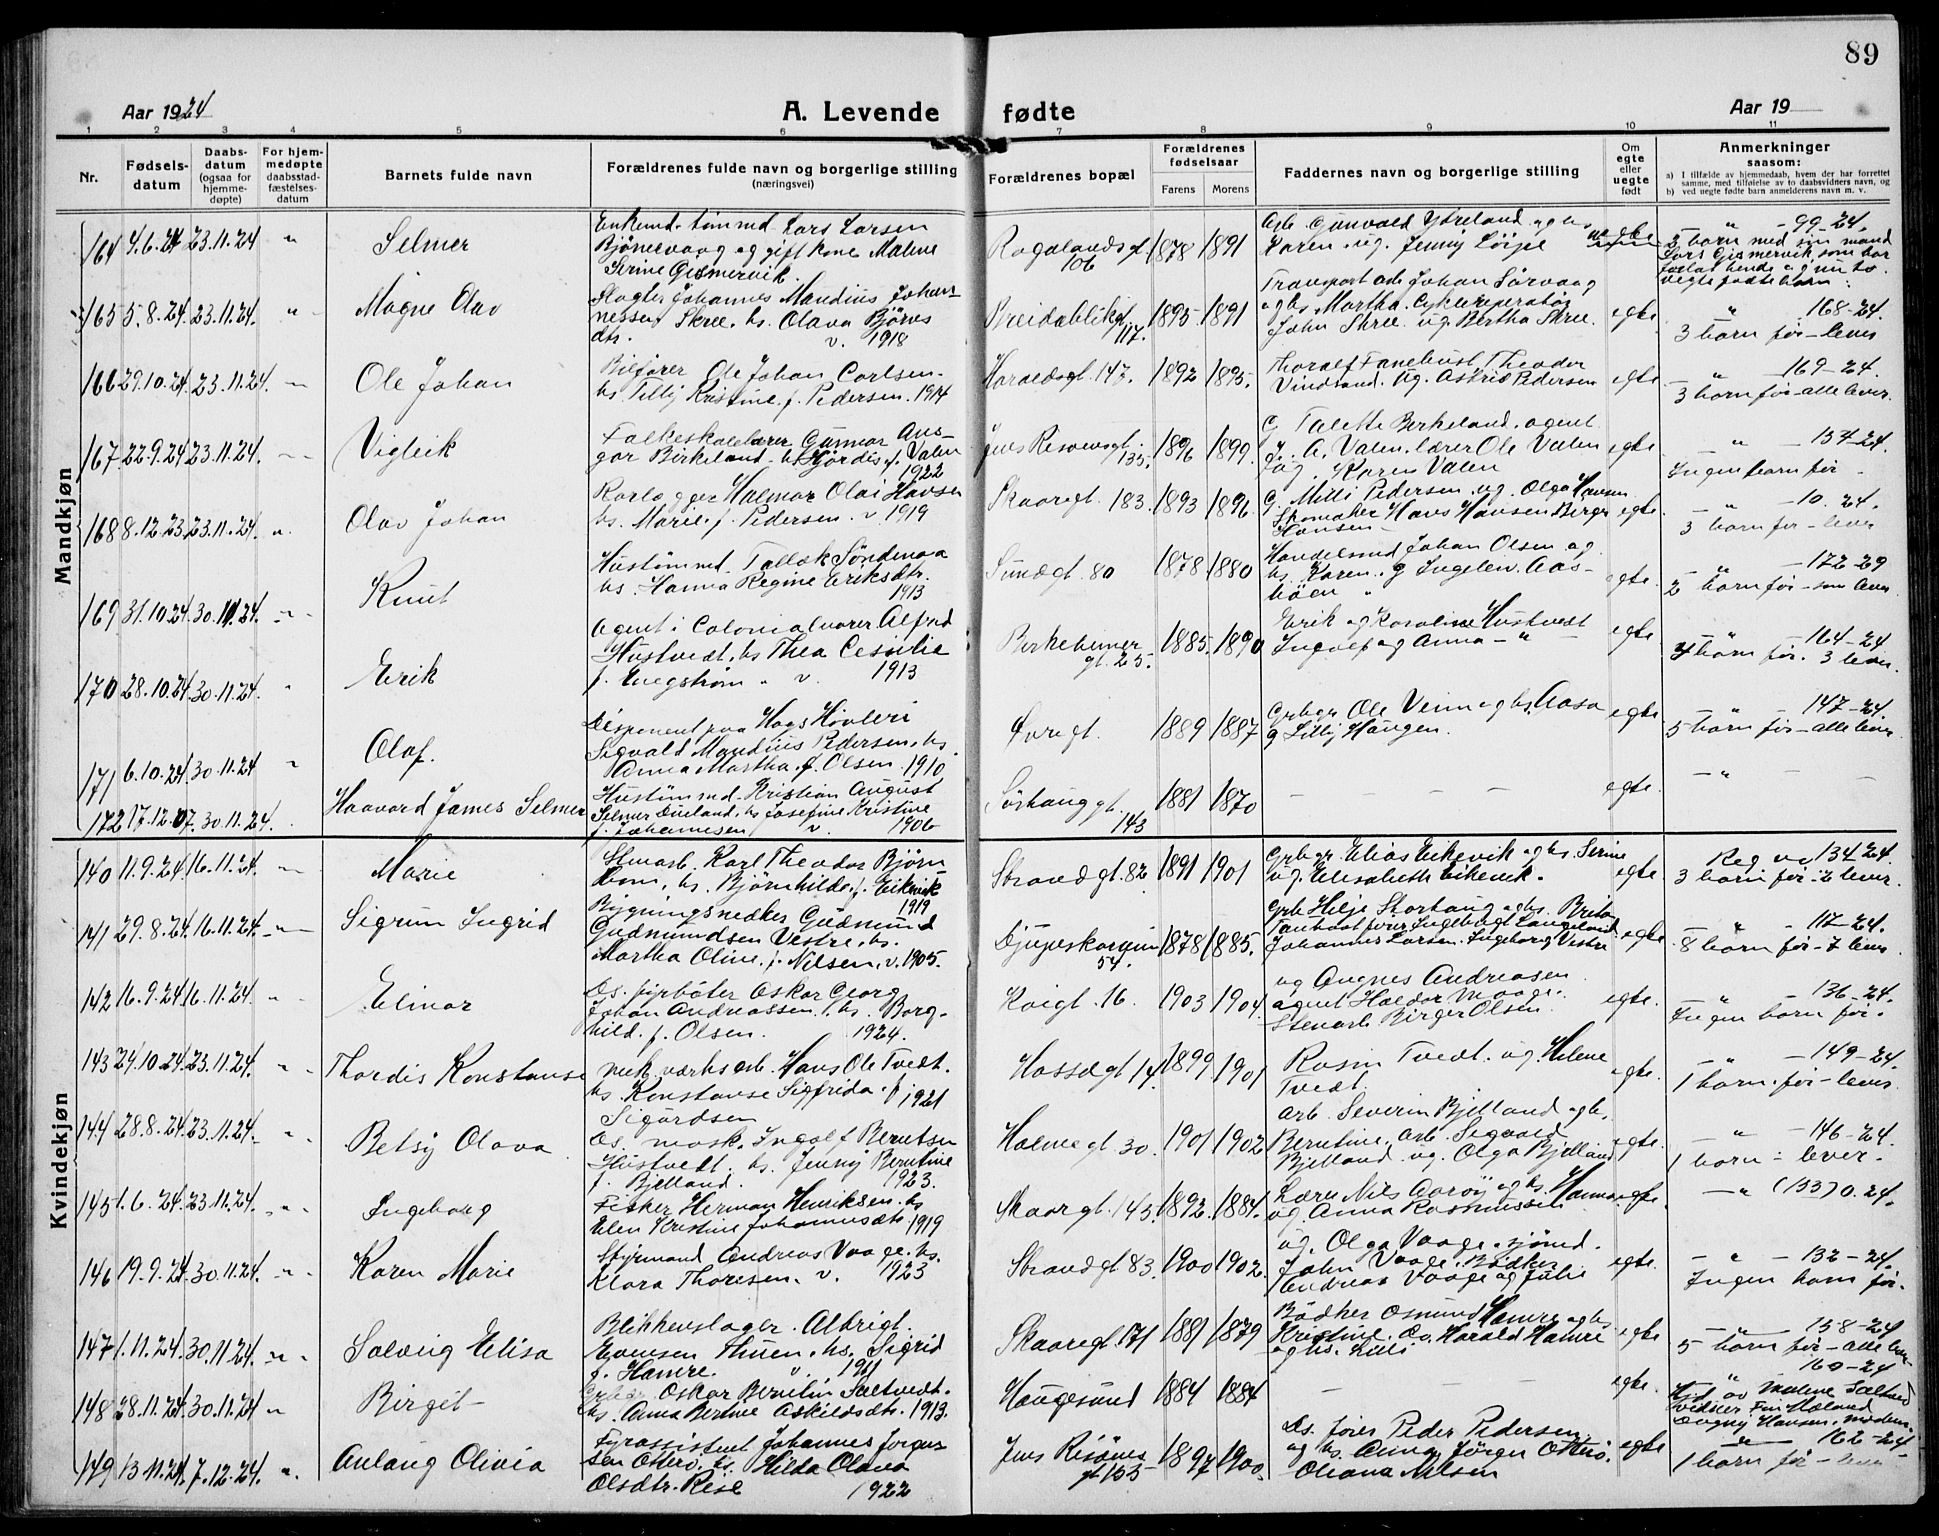 89
Aar 1924
A. Levende fødte
Aar 19
1 2 3 4 5 6 7 8 9 10 11
Nr.
Fødsels-
datum
Daabs-
datum
(ogsaa for
hjemme-
døpte)
For hjem-
medøpte
daabsstad-
fæstelses-
datum
Barnets fulde navn
Forældrenes fulde navn og borgerlige stilling
(næringsvei)
Forældrenes bopæl
Forældrenes
fødselsaar
Farens Morens
Faddernes navn og borgerlige stilling
Om
egte
eller
uegte
født
Anmerkninger
saasom:
a) I tilfælde av hjemmedaab, hvem der har forrettet
samme, med tilføielse av to daabsvidners navn, og
b) ved uegte fødte barn anmelderens navn m. v.
Mandkjøn
164 4.6.24 23.11.24 " Selmer
Enkemd. tømmd. Lars Larsen
Bjønevaag og gift kone Malene
Serine Gismervik.
Rogalandsgt.
106
1878 1891
Arb. Gunvald Ytreland og hs.
Karen. ug. Jenny
uegte
" - 99-24.
2 born med sin mand
Lars Gismervik, som har
forlat hende og nu to
uegtefødte born.
165 5.8.24. 23.11.24. " Magne Olav
Slagter Johannes Mandius Johan-
nessen Skree. hs. Olava Bjørns
dtr. v. 1918
Breidablikgt.
117.
1895 1891
Transport arb. Johan Sørvaag
og hs. Martha. Cykkereperatør
John Skree. ug. Bertha Skree.
egte
" 168-24.
3 born før - lever
166 29.10.24. 23.11.24. " Ole Johan
Bilfører Ole Johan Carlsen.
hs. Tilly Kristine f. Pedersen. 1914
Haraldsgt. 147. 1892 1895.
Thoralf Fanehust Theodor
Vindrand. Ug. Astrid Pedersen
egte
169-24.
3 born før - alle lever.
167 22.9.24 23.11.24. " Vigleik
Folkeskolelærer Gunnar Ans-
gar Birkeland. hs Hjørdis f. Valen
1922
Jens Risøensgt.
135.
1896 1899.
G. Talette Birkeland. agent
J. A. Valen. lærer Ole Valen
og Karen Valen
egte.
" - 157-24.
Ingen barn før -
168 8.12.23. 23.11.24. " Olav Johan
Rørlægger Halmar Olai Hansen
hs. Marie. f. Pedersen. v 1919
Skaaregt. 183. 1893 1896.
G. Milli Pedersen. ug. Olga Hansen
Skomaker Hans Hansen Berger
Hansen
egte.
" - 10.24.
3 born før - lever
169 31.10.24 30.11.24. " Knut
Hustømmd. Tallak Søndenaa
hs. Hanna Regine Eriksdtr.
1913
Sundgt. 80 1878 1880
Handelsmd Johan Olsen og
hs. Karen. g Ingelev. Aas-
høen "
egte.
" - 172-29
2 born før - som lever
170 28.10.24. 30.11.24. " Erik
Agent i Colonialvarer Alfred
Hustvedt. hs Thea Cesilie
f. Engstrøm " v. 1913
Birkebeiner
gt. 25.
1885. 1890
Erik og Karoline Hustvedt
Ingolf og Anna - "
egte
" - 164-24
4 born før. 3 lever.
171 6.10.24. 30.11.24 " Olaf.
Disponent paa Hags Høvleri
Sigvald Mandius Pedersen. hs.
Anna Martha. f. Olsen. 1910
Øvregt. 1889 1887
Grbgr Ole Vinn og hs. Aasa
g Lilly Haugen.
egte
" - 147-24
5 born før - alle lever
172 17.12.07. 30.11.24. Haavard James Selmer
Hustømmd. Kristian August
Selmer Dueland. hs Josefine Kristine
f. Johannesen v. 1906
Sørhauggt.
143
1881 1870
- - - -
egte.
- " - -
Kvindekjøn
140 11.9.24 16.11.24. " Marie
Stenarb. Karl Theodor Bjørn
bom. hs. Bjørnhilda. f. Eikevik
1919
Strandgt. 82 1891 1901
Grbgr Elias Eikevik og hs. Serine
ug. Elisabeth Eikevik.
egte
Reg. ve 134-24.
3 born før - 2 lever.
141 29.8.24. 16.11.24. " Sigrun Ingrid
Bygningsnedker Gudmund
Gudmundsen Vestre. hs.
Martha Oline. f. Nilsen. v. 1905.
Djupeskargun
54.
1878 1885.
Grb. Helje Storhaug og hs. Brita
Johannes Larsen. Ingeborg Vestre
egte.
" - 117-24.
8 born før - 7 lever
142 16.9.24 16.11.24. " Elinor
Ds. fyrbøter Oskar Georg
Johan Andreassen. hs. Borg-
hild. f. Olsen. 1924.
Kaigt. 16. 1903 1904
ug Angnes Andreasen
agent Haldor Maage.
Stenarb Birger Olsen.
egte.
" - 136-24.
Ingen born før.
143 24.10.24. 23.11.24. " Thordis Konstanse
mek. værksarb. Hans Ole Tvedt.
hs. Konstanse Sigfrida. f.
Sigurdsen 1921
Hassegt 14. 1899 1901
Rasm Tvedt. ug. Helene
Tvedt.
egte.
" - 149-24
1 born. før - lever.
144 28.8.24. 23.11.24. " Betsy Olava
Ds. mask. Ingolf Berntsen
Hustvedt. hs. Jenny Berntine
f. Bjelland. 1923.
Halmegt 30. 1901 1902
Arb. Severin Bjelland og hs.
Berntine. Arb Segvald
Bjelland. ug. Olga Bjelland
egte.
" - 146-24.
1 born - lever.
145 1.6.24. 23.11.24. " Ingeborg
Fisker Herman Henriksen. hs
Elen Kristine Johannesdtr. 1919
Skaaregt. 143. 1892. 1884.
Lærer Nils Aarøy og hs. Hanna
ug. Anna Rasmussen
egte.
- " (133) 0.24.
146 19.9.24 30.11.24. " Karen Marie
Styrmand Andreas Vaage. hs.
Klara Thoresen. v. 1923
Strandgt 83. 1900 1902.
ug. Olga Vaage. sjømd.
John Vaage. Bødker
Andreas Vaage og Julie
egte.
- " - 132-24
Ingen born før.
147 1.11.24. 30.11.24. " Solveig Elisa
Blikkenslager. Albrigt.
Evensen Thuen. hs. Sigrid
f. Hamre. v. 1911
Skaaregt. 171 1881 1879
Bødker Osmund Hamre og hs
Kristine. Ds. Harald Hamre
og hs. Lilli
egte
- " - 158-24
5 born før - alle lever
148 28.11.24. 30.11.24 " Birgit
Grbgr Oskar Berntin Saltvedt.
hs. Anna Bertine Askildsdtr. 1913.
Haugesund 1884 1884
- - -
egte.
" 160-24
Hjd. av Malene Saltvedt
vidner Fin Mæland
og Hansen.
149 13.11.24. 7.12.24. " Aslaug Olivia
Fyrassistent Johannes Jørgen
sen Østerø. hs. Hilda Olava
Olsdtr. Rese 1922
Jens Risøens
gt 155
1897 1900.
Ds. fører Peder Pedersen
og hs Anna. Jørgen Østerø.
Oliana Nilsen
egte
" - 162-24
1 born før - lever